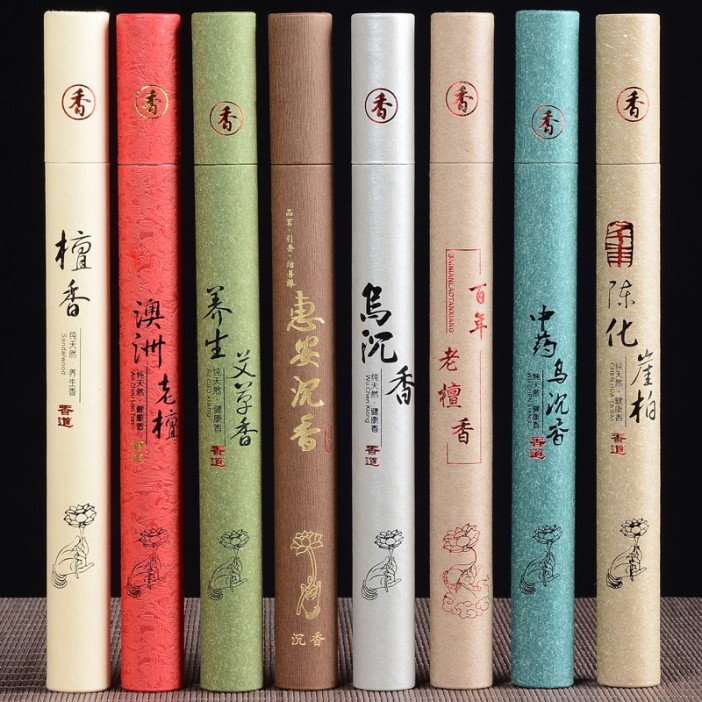 香
檀香
纯天然·养生香
Sandalwood
香道
香
澳洲老檀
纯天然·健康香
香道
香
养生
艾草香
纯天然·健康香
香道
品茗·引香·结善缘
惠安沉香
沉香
香
乌沉香
纯天然·健康香
Wu Chen Xiang
香道
香
百年
老檀香
BAINIANLAOTANXIANG
香
中药乌沉香
纯天然·健康香
香道
香
陈化
崖柏
纯天然·健康香
香道